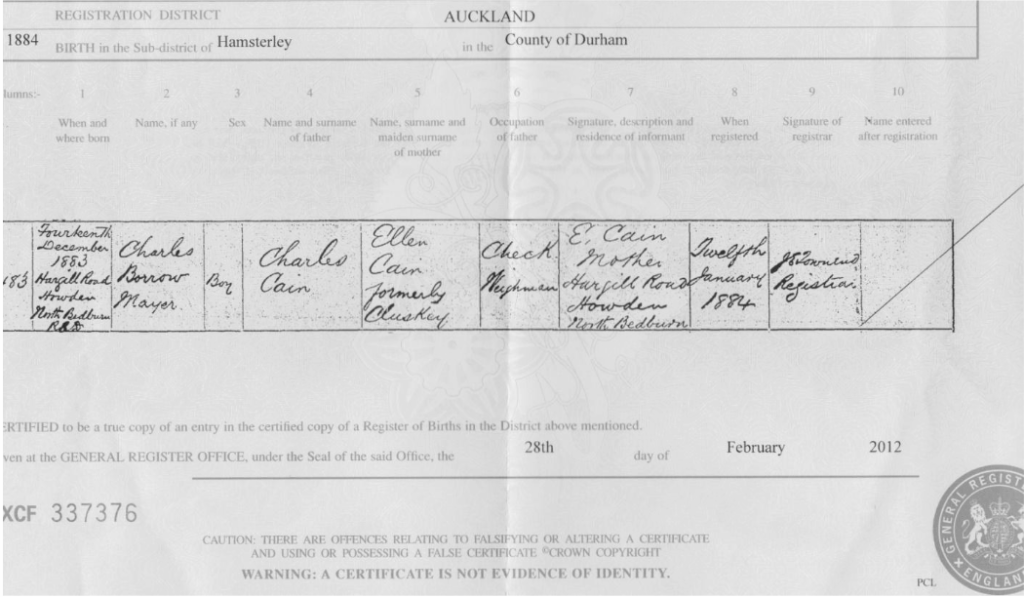 REGISTRATION DISTRICT AUCKLAND
1884 BIRTH in the Sub-district of Hamsterley in the County of Durham
lumns:- 1 2 3 4 5 6 7 8 9 10
When and where born
Name, if any
Sex
Name and surname of father
Name, surname and maiden surname of mother
Occupation of father
Signature, description and residence of informant
When registered
Signature of registrar
Name entered after registration
183
Fourteenth
December
1883
Hargill Road
Howden
North Bedburn
R.S.D
Charles
Borrow
Mayer.
Boy
Charles
Cain
Ellen
Cain
formerly
Cluskey
Check
Weighman
E. Cain
Mother
Hargill Road
Howden
North Bedburn
Twelfth
January
1884
Townend
Registrar
ERTIFIED to be a true copy of an entry in the certified copy of a Register of Births in the District above mentioned.
ven at the GENERAL REGISTER OFFICE, under the Seal of the said Office, the 28th day of February 2012
XCF 337376
CAUTION: THERE ARE OFFENCES RELATING TO FALSIFYING OR ALTERING A CERTIFICATE
AND USING OR POSSESSING A FALSE CERTIFICATE ©CROWN COPYRIGHT
WARNING: A CERTIFICATE IS NOT EVIDENCE OF IDENTITY.
GENERAL REGIST
ENGLAN
PCL